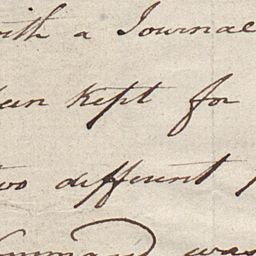 with a Journal
kept for
two different
Command was